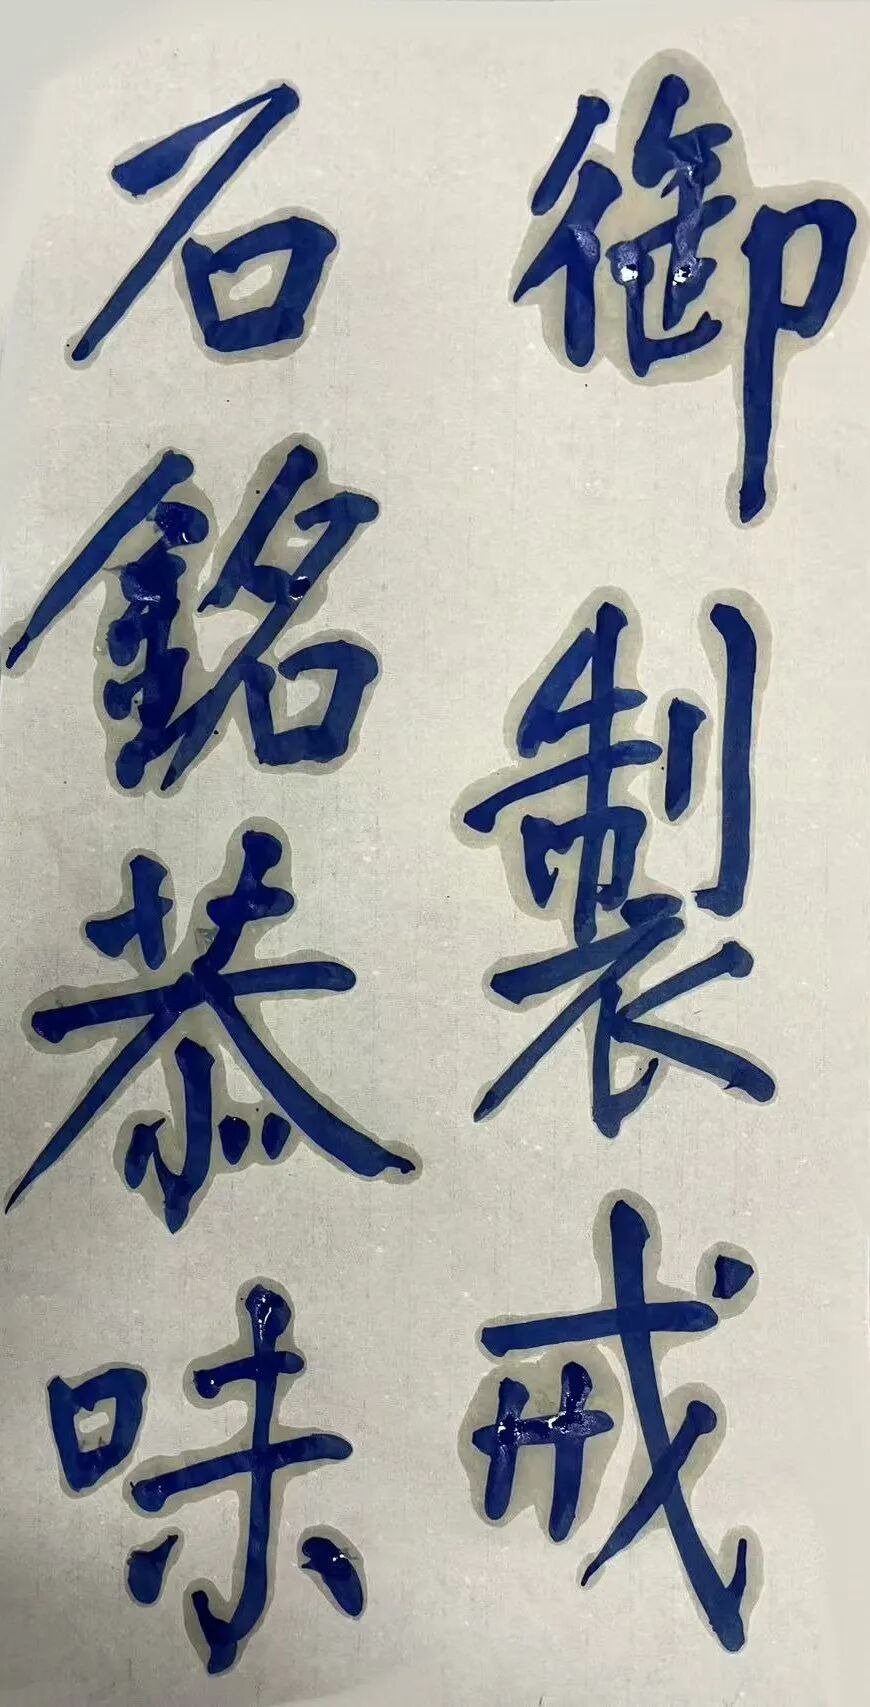 御製戒
石銘恭味